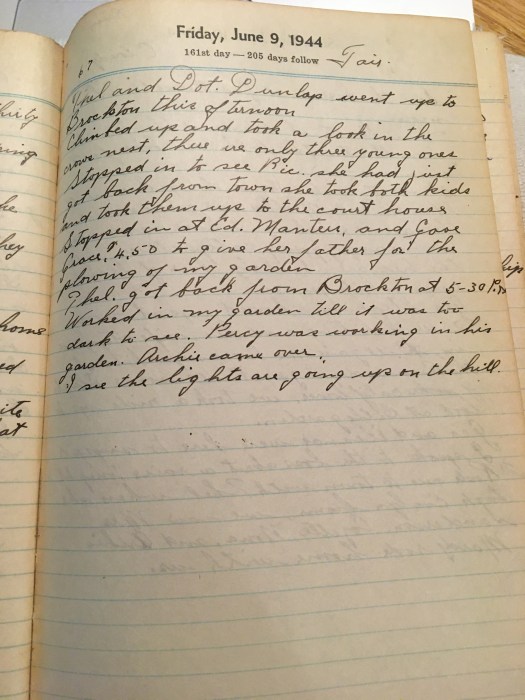 Friday, June 9, 1944
161st day — 205 days follow
Fair.
67
Thel and Dot. Dunlap went up to
Brockton this afternoon
Climbed up and took a look in the
crows nest, there ve only three young ones
Stopped in to see Ric. she had just
got back from town she took both kids
and took them up to the court house
Stopped in at Ed. Manter, and Gave
Grace, $4.50 to give her father for the
plowing of my garden
Thel. got back from Brockton at 5-30 P.M
Worked in my garden till it was too
dark to see. Percy was working in his
garden. Archie came over.
I see the lights are going up on the hill.